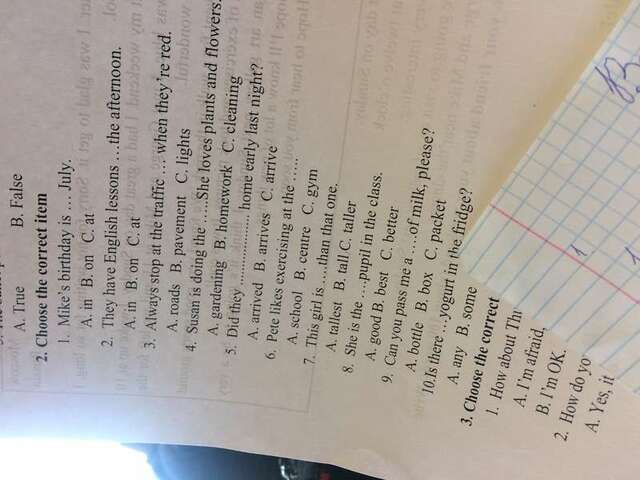 A. True B. False
2. Choose the correct item
1. Mike's birthday is …. July.
A. in B. on C. at
2. They have English lessons …the afternoon.
A. in B. on C. at
3. Always stop at the traffic …. when they're red.
A. roads B. pavement C. lights
4. Susan is doing the ......She loves plants and flowers.
A. gardening B. homework C. cleaning
5. Did they ..................... home early last night?
A. arrived B. arrives C. arrive
6. Pete likes exercising at the ……
A. school B. centre C. gym
7. This girl is .....than that one.
A. tallest B. tall C. taller
8. She is the ….pupil in the class.
A. good B. best C. better
9. Can you pass me a …..of milk, please?
A. bottle B. box C. packet
10.Is there …yogurt in the fridge?
A. any B. some
3. Choose the correct
1. How about
A. I'm afraid,
B. I'm OK.
2. How do
A. Yes, it